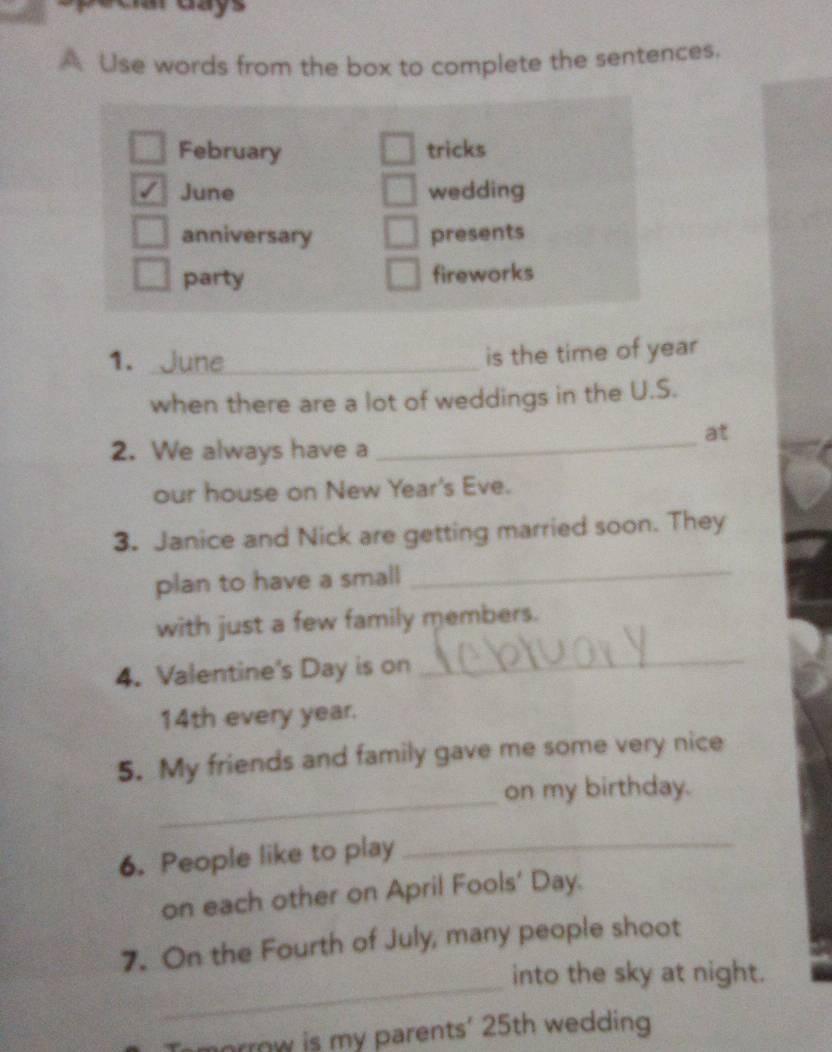 Special days
A Use words from the box to complete the sentences.
February tricks
✓ June wedding
anniversary presents
party fireworks
1. June is the time of year
when there are a lot of weddings in the U.S.
2. We always have a ____________ at
our house on New Year's Eve.
3. Janice and Nick are getting married soon. They
plan to have a small ____________
with just a few family members.
4. Valentine's Day is on february
14th every year.
5. My friends and family gave me some very nice
____________ on my birthday.
6. People like to play ____________
on each other on April Fools' Day.
7. On the Fourth of July, many people shoot
____________ into the sky at night.
Tomorrow is my parents' 25th wedding